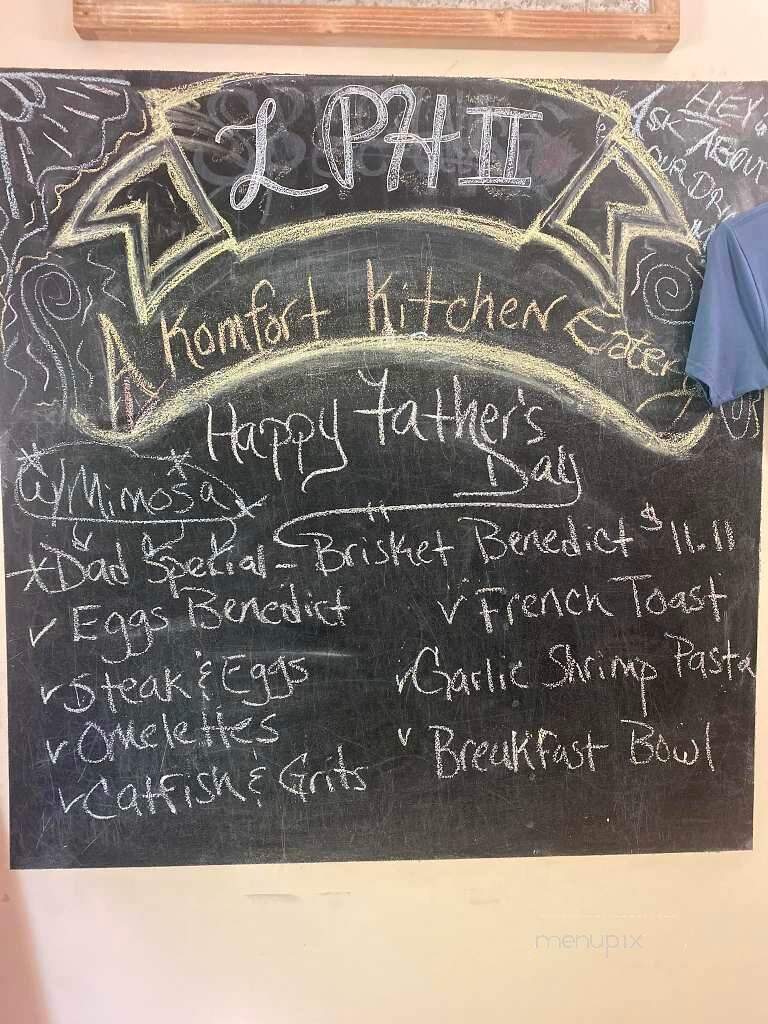 LPH II
HEY
ASK ABOUT
OUR
A Komfort Kitchen
Happy Father's
Day
w/ Mimosa
Dad Special - Brisket Benedict $11.11
✓ Eggs Benedict
✓ French Toast
✓ Steak & Eggs
✓ Garlic Shrimp Pasta
✓ Omelettes
✓ Breakfast Bowl
✓ Catfish & Grits
menupix